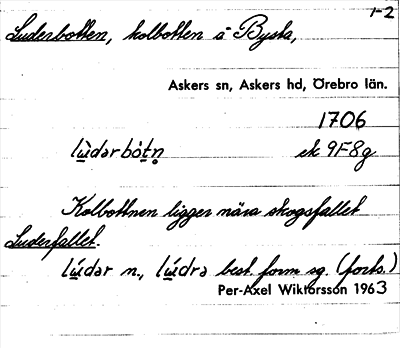 1-2
Luderbotten, kolbotten å Bysta,
Askers sn, Askers hd, Örebro län.
1706
lùdərbòtn̥ ek 9F8g
Kolbottnen ligger nära skogsfallet
Luderfallet.
lúdər n., lúdrə best. form sg. (forts.)
Per-Axel Wiktorsson 1963